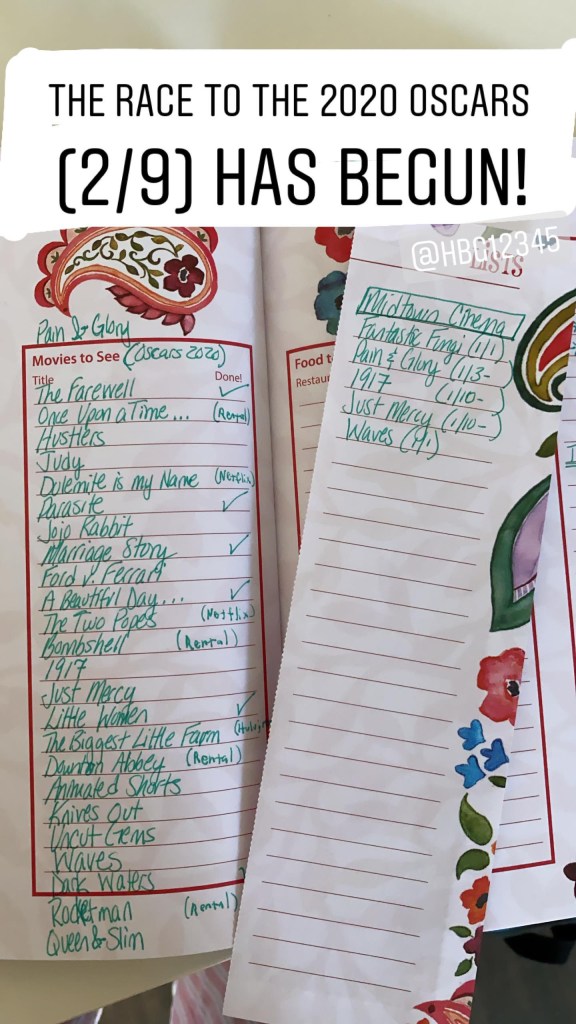 THE RACE TO THE 2020 OSCARS
(2/9) HAS BEGUN!
@HBG12345
LISTS
Pain & Glory
Movies to See (Oscars 2020)
Title Done!
The Farewell ✓
Once Upon a Time... (Rental)
Hustlers
Judy
Dolemite is my Name (Netflix)
Parasite ✓
Jojo Rabbit
Marriage Story ✓
Ford v. Ferrari
A Beautiful Day... ✓
The Two Popes (Netflix)
Bombshell (Rental)
1917
Just Mercy
Little Women ✓
The Biggest Little Farm
Downton Abbey (Rental)
Animated Shorts
Knives Out
Uncut Gems
Waves
Dark Waters
Rocketman (Rental)
Queen & Slim
Food to
Restaur
Midtown Cinema
Fantastic Fungi (1/1)
Pain & Glory (1/3-
1917 (1/10-)
Just Mercy (1/10-)
Waves